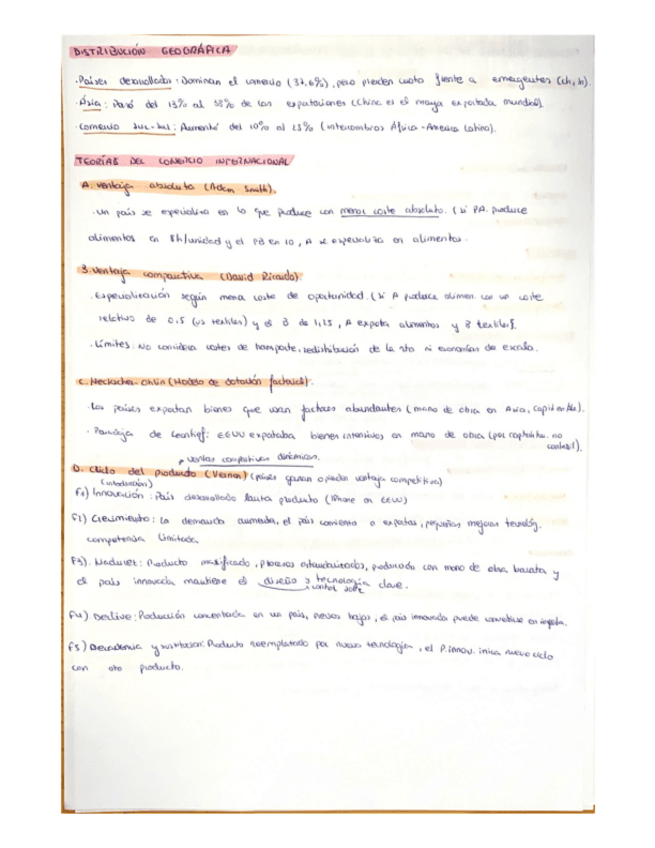 DISTRIBUCIÓN GEOGRÁFICA
· Países desarrollados: Dominan el comercio (37,6%), pero pierden cuota frente a emergentes (Ch, In).
· Asia: Pasó del 13% al 38% de las exportaciones (China es el mayor exportador mundial).
· Comercio Sur-Sur: Aumentó del 10% al 25% (intercambios África-América Latina).
TEORÍAS DEL COMERCIO INTERNACIONAL
A. Ventaja absoluta (Adam Smith).
· Un país se especializa en lo que produce con menor coste absoluto. (si PA produce
alimentos en 8h/unidad y el PB en 10, A se especializa en alimentos.
B. Ventaja comparativa (David Ricardo):
· Especialización según menor coste de oportunidad. (si A produce alimen. con un coste
relativo de 0,5 (vs textiles) y el B de 1,25, A exporta alimentos y B textiles).
· Límites: No considera costes de transporte, redistribución de la rta ni economías de escala.
C. Heckscher-Ohlin (Modelo de dotación factorial).
· Los países exportan bienes que usan factores abundantes (mano de obra en Asia, capital en).
· Paradoja de Leontief: EEUU exportaba bienes intensivos en mano de obra (por capital hu. no
contabil).
ventajas competitivas dinámicas.
D. Ciclo del producto (Vernon) (países ganan o pierden ventaja competitiva)
(introducción)
F1) Innovación: País desarrollado lanza producto (iPhone en EEUU)
F2) Crecimiento: La demanda aumenta, el país comienza a exportar, pequeñas mejoras tecnológ.
competencia limitada.
F3). Madurez: Producto masificado, procesos estandarizados, producido con mano de obra barata y
el país innovador mantiene el diseño y tecnología clave.
control sobre
F4) Declive: Producción concentrada en un país, precios bajos, el país innovador puede convertirse en importa.
F5) Decadencia y sustitución: Producto reemplazado por nuevas tecnologías, el P. innov. inicia nuevo ciclo
con otro producto.